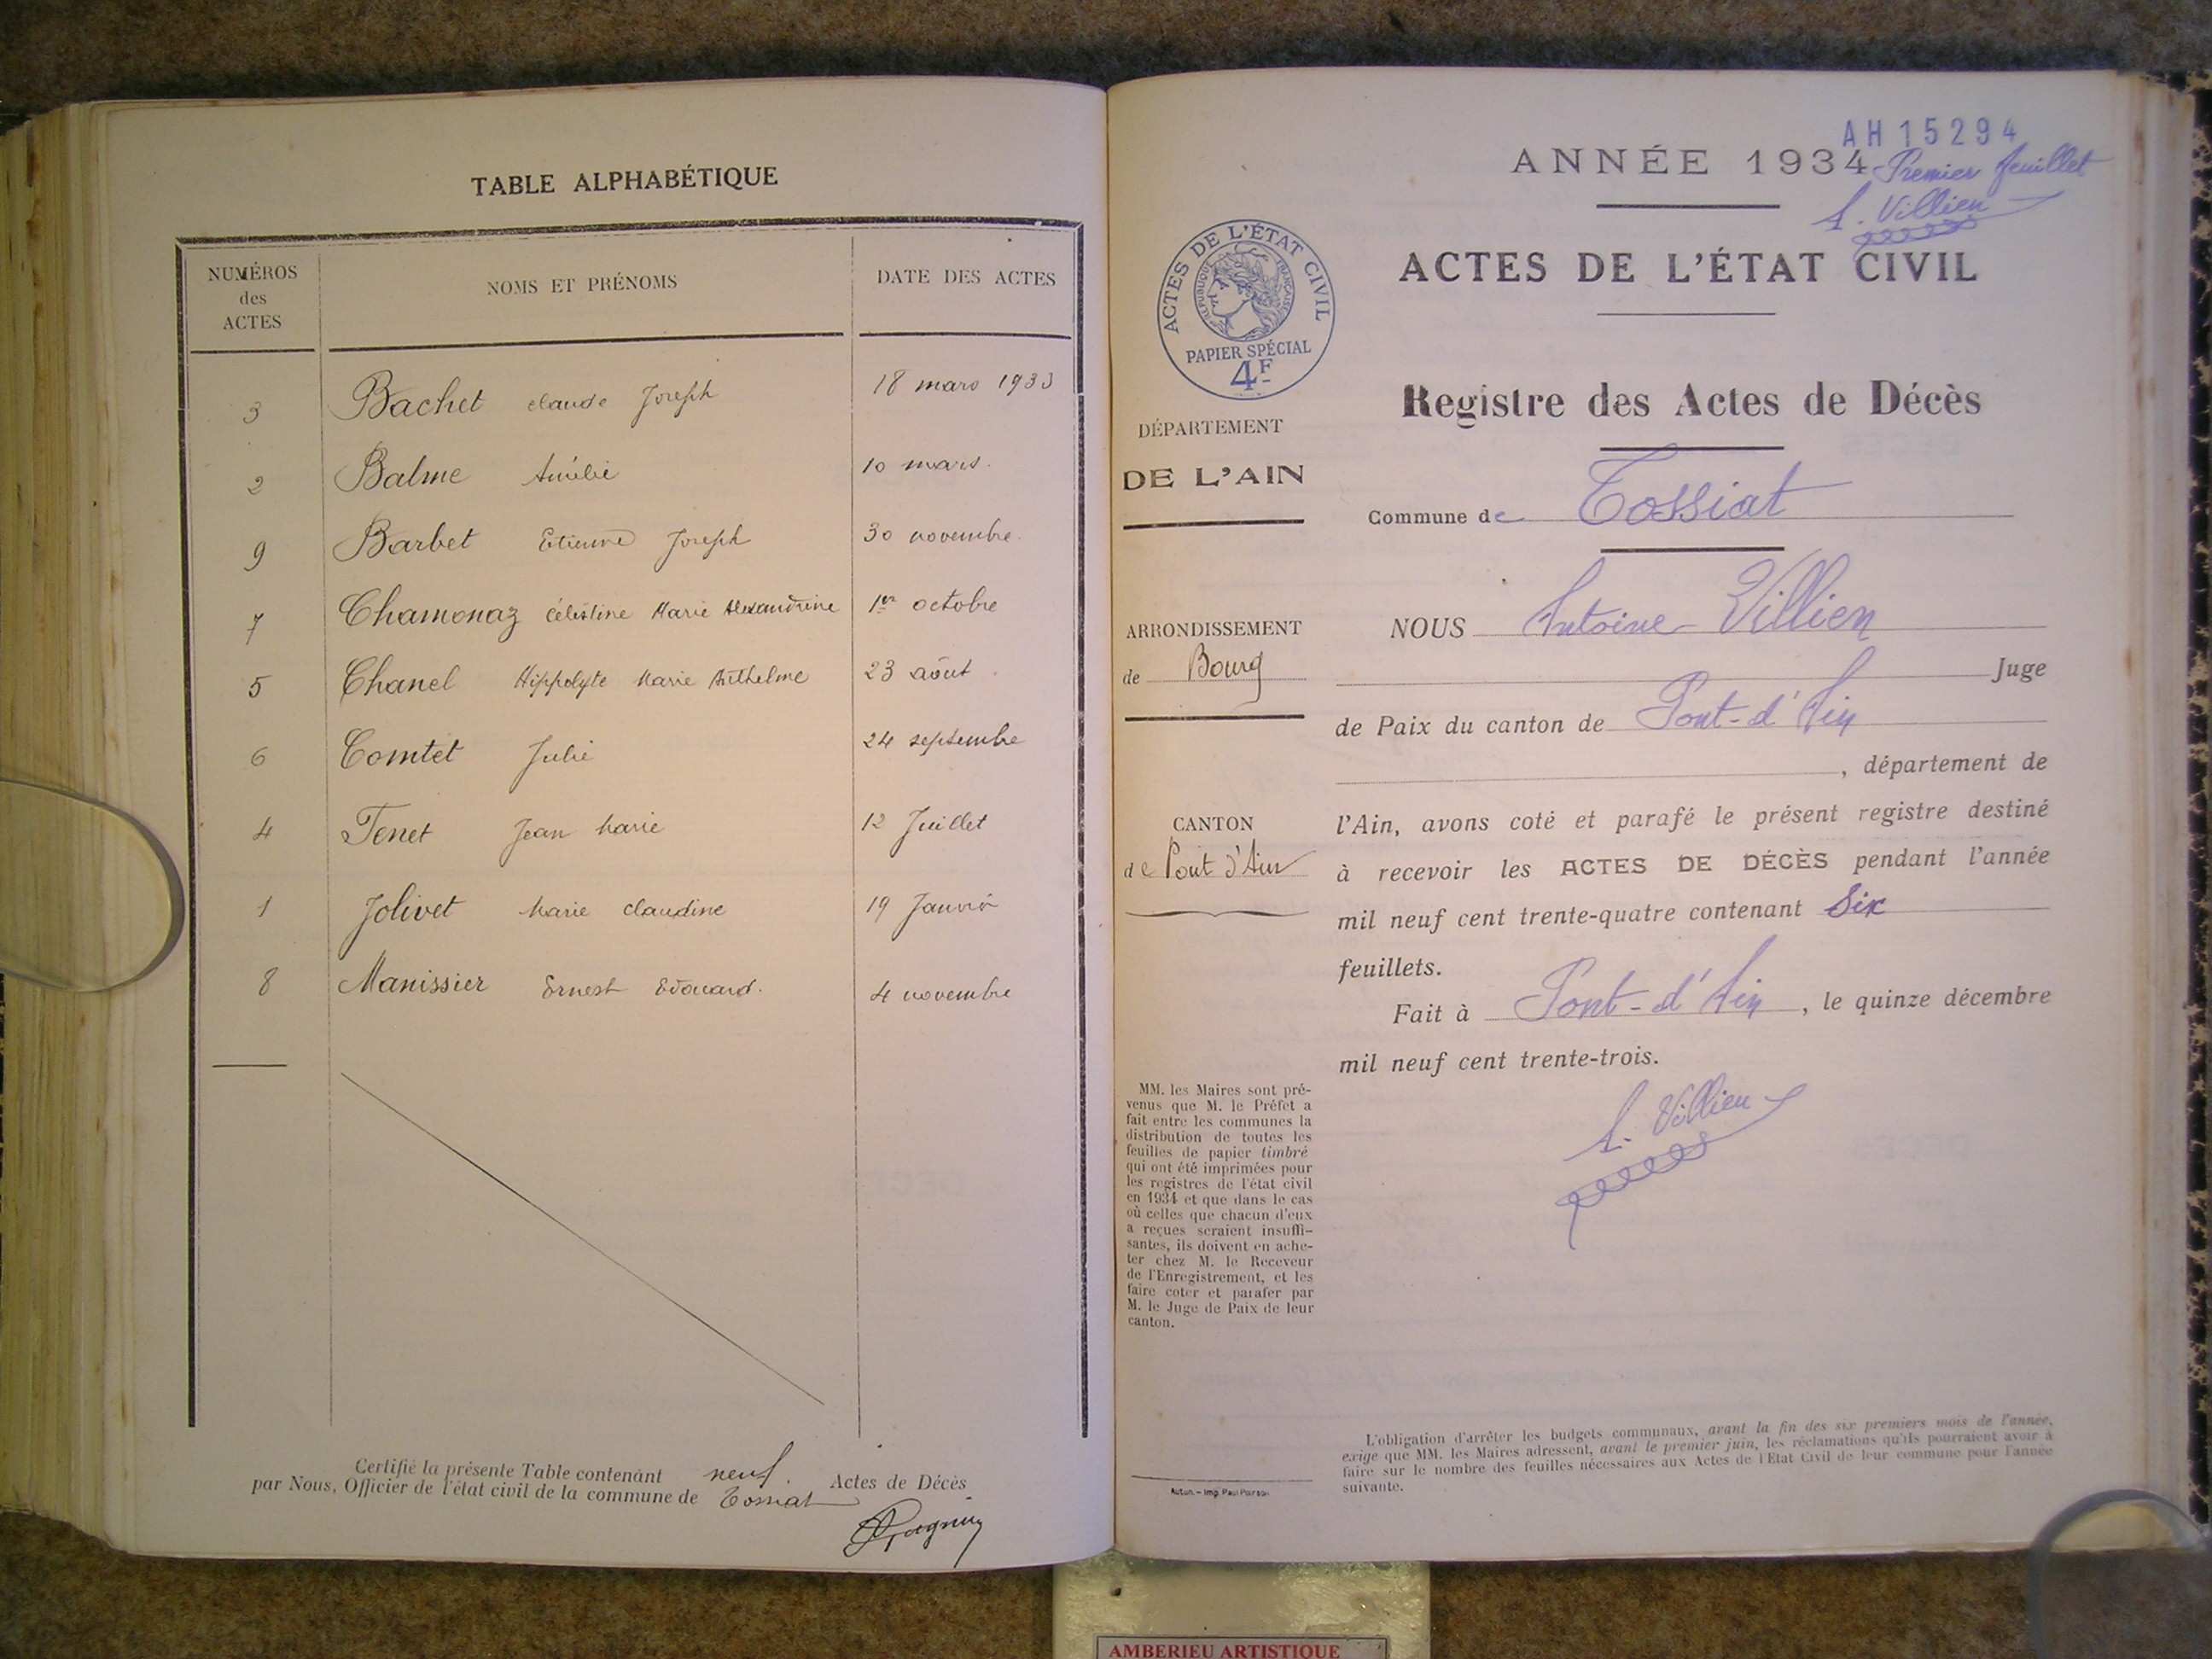 TABLE ALPHABÉTIQUE
NUMÉROS des ACTES NOMS ET PRÉNOMS DATE DES ACTES
3 Bachet claude Joseph 18 mars 1933
2 Balme Amélie 10 mars.
9 Barbet Etienne Joseph 30 novembre.
7 Chamonaz Célestine Marie Alexandrine 1er octobre
5 Chanel Hippolyte Marie Anthelme 23 août
6 Comtet Julie 24 septembre
4 Tenet Jean Marie 12 Juillet
1 Jolivet Marie claudine 19 Janvier
8 Manissier Ernest Edouard. 4 novembre
Certifié la présente Table contenant neuf. Actes de Décès
par Nous, Officier de l'état civil de la commune de Tossiat
AH 15294
ANNÉE 1934 Premier feuillet
A. Villien
ACTES DE L'ÉTAT CIVIL
ACTES DE L'ÉTAT CIVIL
RÉPUBLIQUE FRANÇAISE
PAPIER SPÉCIAL
4F
Registre des Actes de Décès
DÉPARTEMENT
DE L'AIN
Commune de Tossiat
ARRONDISSEMENT
de Bourg
NOUS Antoine Villien
Juge
de Paix du canton de Pont-d'Ain
, département de
CANTON
de Pont d'Ain
l'Ain, avons coté et parafé le présent registre destiné
à recevoir les ACTES DE DÉCÈS pendant l'année
mil neuf cent trente-quatre contenant Six
feuillets.
Fait à Pont-d'Ain, le quinze décembre
mil neuf cent trente-trois.
A. Villien
MM. les Maires sont pré-
venus que M. le Préfet a
fait entre les communes la
distribution de toutes les
feuilles de papier timbré
qui ont été imprimées pour
les registres de l'état civil
en 1934 et que dans le cas
où celles que chacun d'eux
a reçues seraient insuffi-
santes, ils doivent en ache-
ter chez M. le Receveur
de l'Enregistrement, et les
faire coter et parafer par
M. le Juge de Paix de leur
canton.
L'obligation d'arrêter les budgets communaux, avant la fin des six premiers mois de l'année,
exige que MM. les Maires adressent, avant le premier juin, les réclamations qu'ils pourraient avoir à
faire sur le nombre des feuilles nécessaires aux Actes de l'Etat Civil de leur commune pour l'année
suivante.
Autun. – Imp. Paul
AMBERIEU ARTISTIQUE